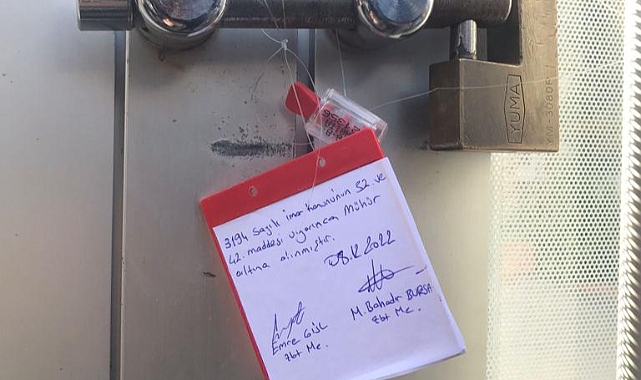 YUMA
3194 sayılı imar kanununun 32. ve
42. maddesi uyarınca mühür
altına alınmıştır.
08.12.2022
Emre GİSL
Zbt Me.
M. Bahadır BURSA
Zbt Me.